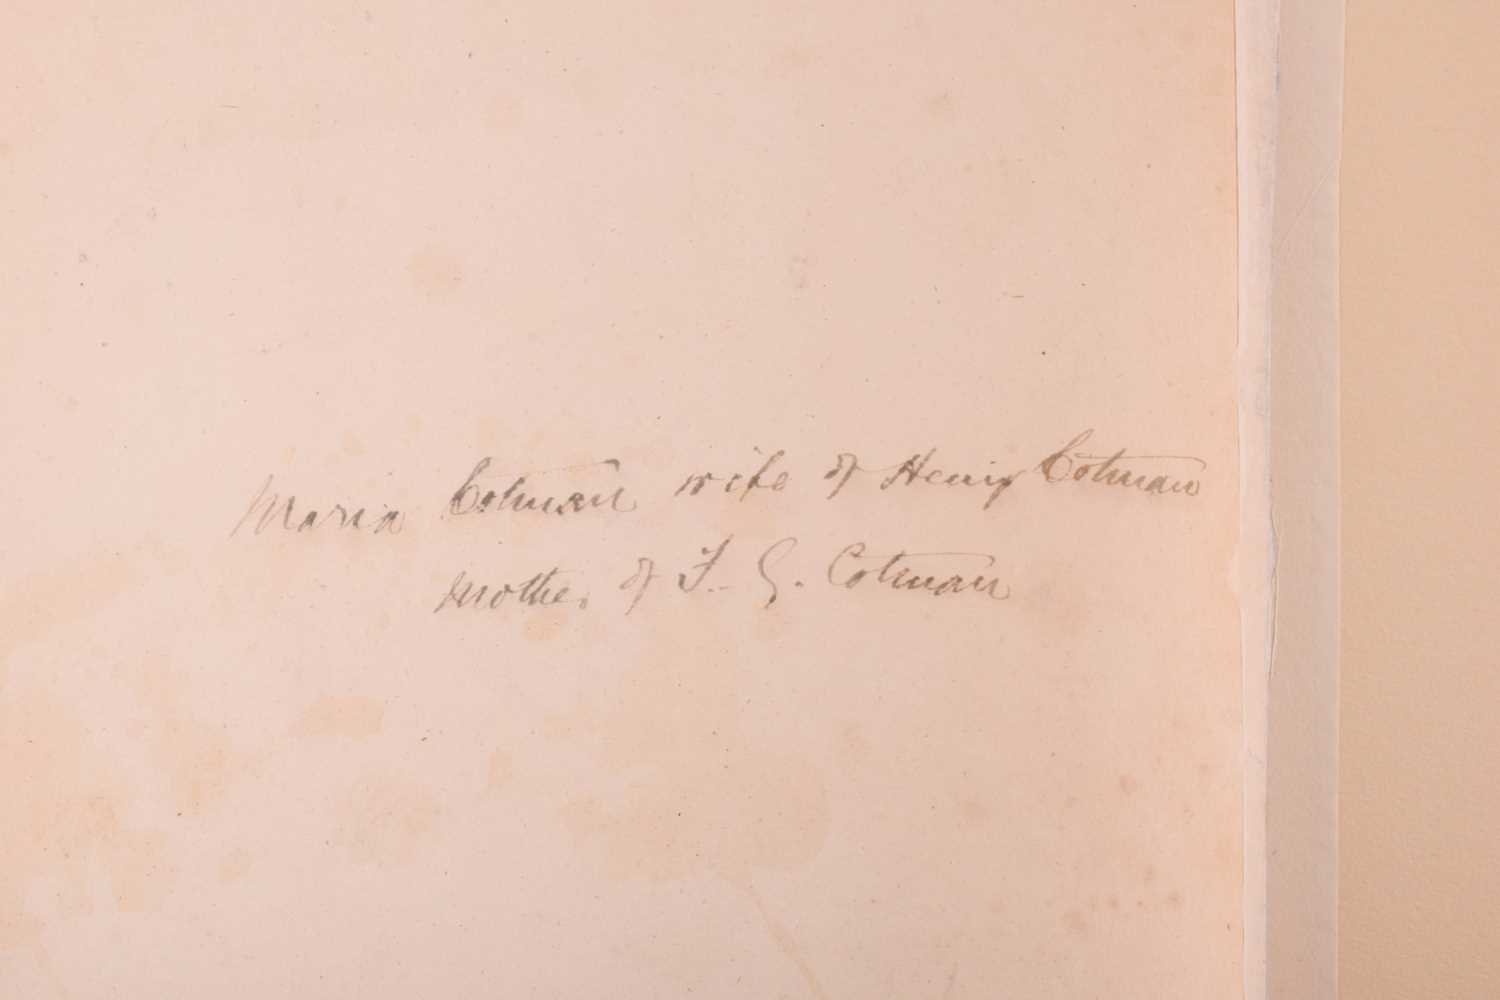 Maria Cotman wife of Henry Cotman
Mother of F. G. Cotman